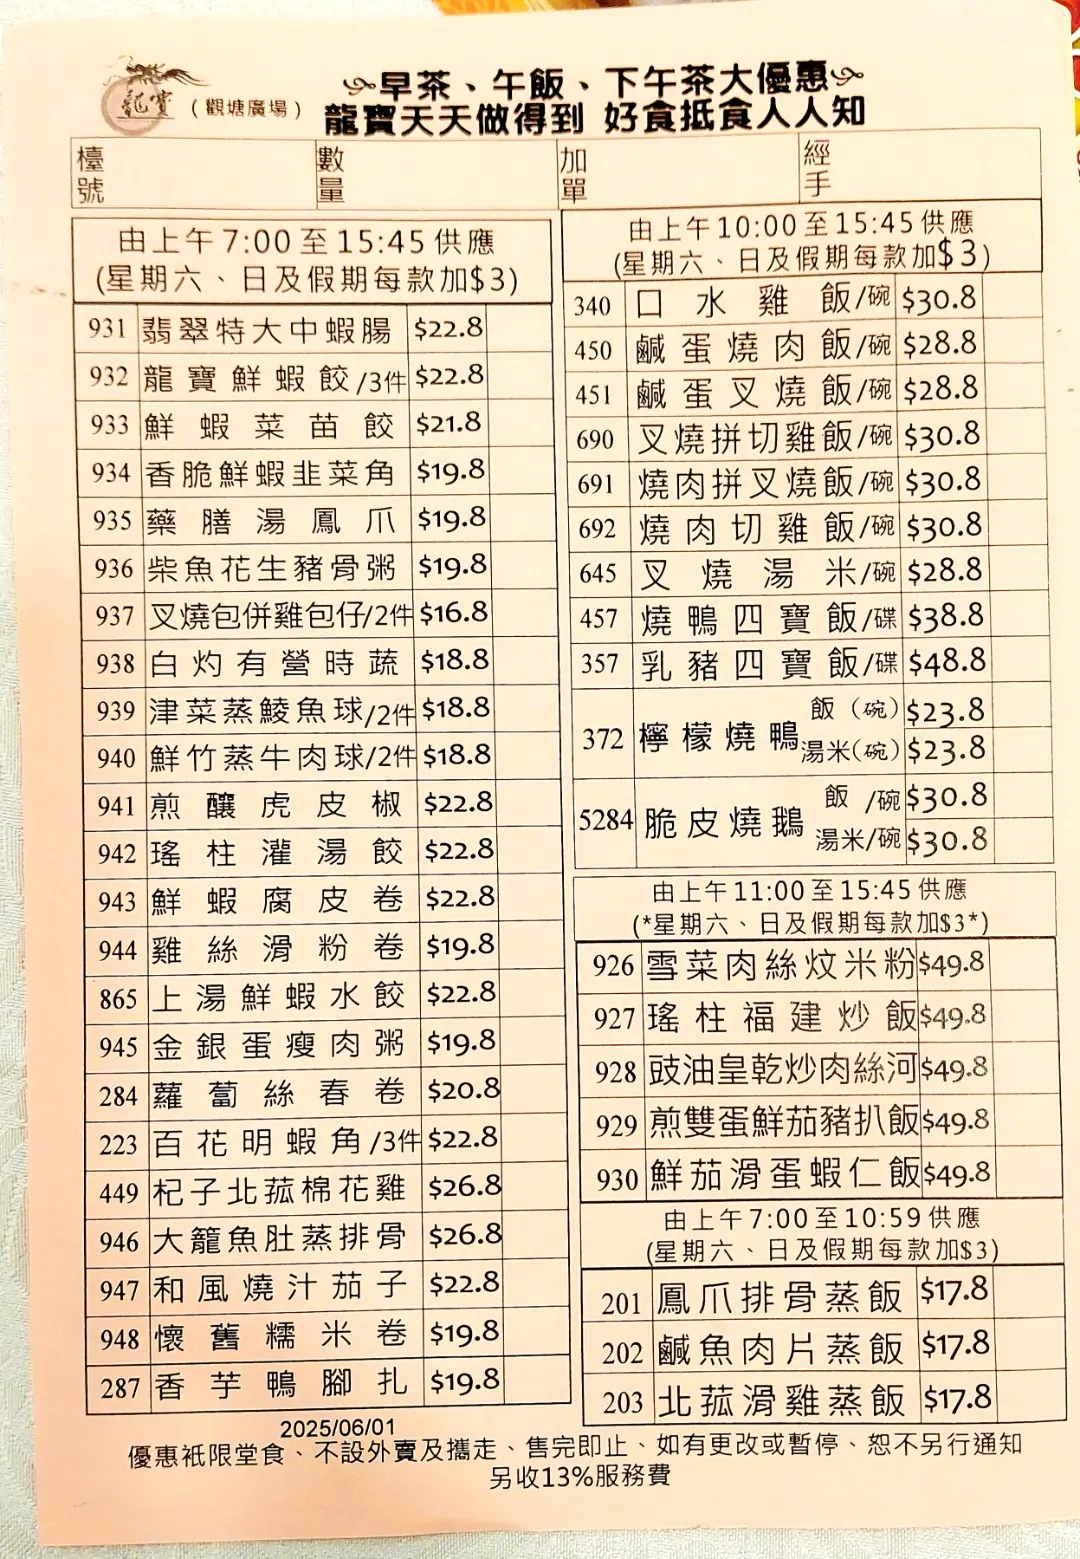 龍寶
(觀塘廣場)
早茶、午飯、下午茶大優惠
龍寶天天做得到 好食抵食人人知
檯號 數量 加單 經手
由上午7:00至15:45供應
(星期六、日及假期每款加$3)
931 翡翠特大中蝦腸 $22.8
932 龍寶鮮蝦餃/3件 $22.8
933 鮮蝦菜苗餃 $21.8
934 香脆鮮蝦韭菜角 $19.8
935 藥膳湯鳳爪 $19.8
936 柴魚花生豬骨粥 $19.8
937 叉燒包併雞包仔/2件 $16.8
938 白灼有營時蔬 $18.8
939 津菜蒸鯪魚球/2件 $18.8
940 鮮竹蒸牛肉球/2件 $18.8
941 煎釀虎皮椒 $22.8
942 瑤柱灌湯餃 $22.8
943 鮮蝦腐皮卷 $22.8
944 雞絲滑粉卷 $19.8
865 上湯鮮蝦水餃 $22.8
945 金銀蛋瘦肉粥 $19.8
284 蘿蔔絲春卷 $20.8
223 百花明蝦角/3件 $22.8
449 杞子北菰棉花雞 $26.8
946 大籠魚肚蒸排骨 $26.8
947 和風燒汁茄子 $22.8
948 懷舊糯米卷 $19.8
287 香芋鴨腳扎 $19.8
由上午10:00至15:45供應
(星期六、日及假期每款加$3)
340 口水雞飯/碗 $30.8
450 鹹蛋燒肉飯/碗 $28.8
451 鹹蛋叉燒飯/碗 $28.8
690 叉燒拼切雞飯/碗 $30.8
691 燒肉拼叉燒飯/碗 $30.8
692 燒肉切雞飯/碗 $30.8
645 叉燒湯米/碗 $28.8
457 燒鴨四寶飯/碟 $38.8
357 乳豬四寶飯/碟 $48.8
372 檸檬燒鴨 飯(碗) $23.8
湯米(碗) $23.8
5284 脆皮燒鵝 飯/碗 $30.8
湯米/碗 $30.8
由上午11:00至15:45供應
(*星期六、日及假期每款加$3*)
926 雪菜肉絲炆米粉 $49.8
927 瑤柱福建炒飯 $49.8
928 豉油皇乾炒肉絲河 $49.8
929 煎雙蛋鮮茄豬扒飯 $49.8
930 鮮茄滑蛋蝦仁飯 $49.8
由上午7:00至10:59供應
(星期六、日及假期每款加$3)
201 鳳爪排骨蒸飯 $17.8
202 鹹魚肉片蒸飯 $17.8
203 北菰滑雞蒸飯 $17.8
2025/06/01
優惠衹限堂食、不設外賣及攜走、售完即止、如有更改或暫停、恕不另行通知
另收13%服務費